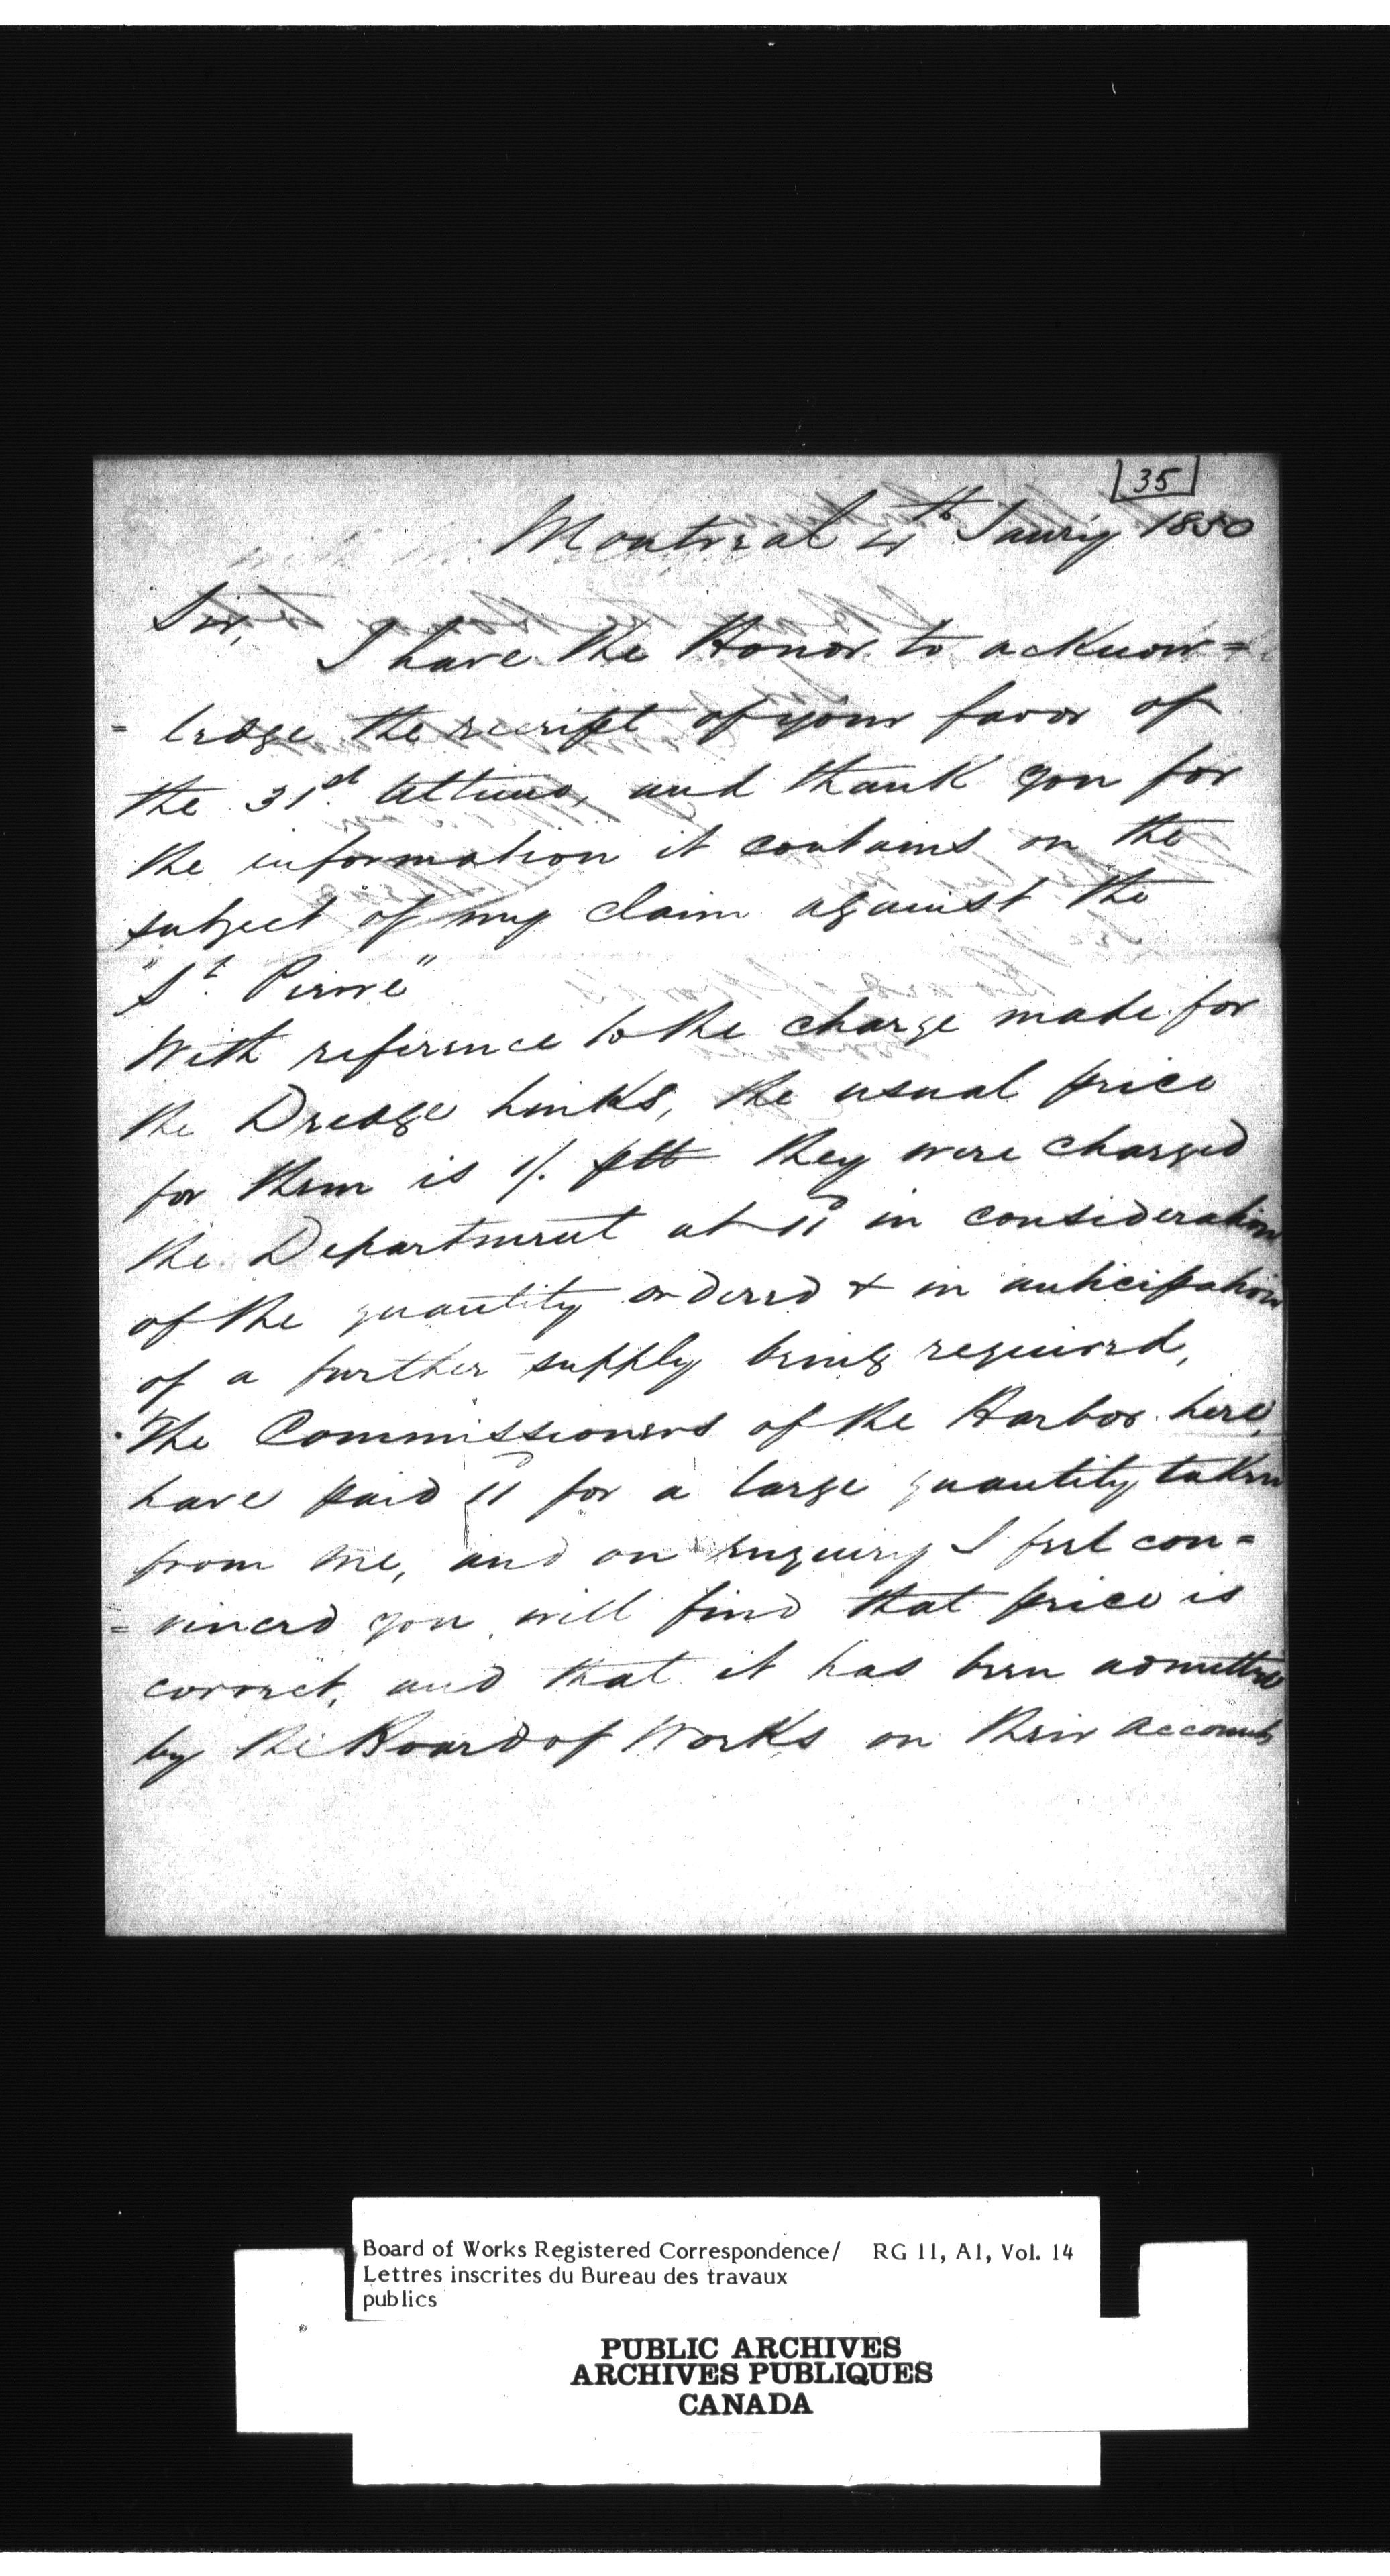 35
Montreal 4th Jaury 1850
Sir,
I have the Honor to acknow=
=ledge the receipt of your favor of
the 31st Ultimo, and thank you for
the information it contains on the
subject of my claim against the
"St. Pierre"
With reference to the charge made for
the Dredge links, the usual price
for them is 1/. they were charged
the Department at 11d in consideration
of the quantity ordered & in anticipation
of a further supply being required,
The Commissioners of the Harbor here,
have paid 11d for a large quantity taken
from me, and on enquiry I feel con=
=vinced you will find that price is
correct, and that it has been admitted
by the Board of Works on their accounts
Board of Works Registered Correspondence/ RG 11, A1, Vol. 14
Lettres inscrites du Bureau des travaux
publics
PUBLIC ARCHIVES
ARCHIVES PUBLIQUES
CANADA